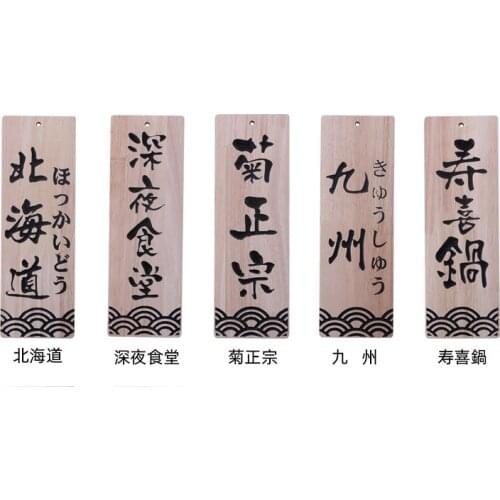 北海道
ほっかいどう
深夜食堂
菊正宗
九州
きゅうしゅう
寿喜鍋
北海道
深夜食堂
菊正宗
九 州
寿喜鍋